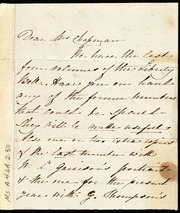 Dear Mrs Chapman
We have the last
four volumes of the Liberty
Bell. Have you on hand
any of the former numbers
that could be spared
They will be made useful &
like one or two extra copies
of the last number with
W L Garrison's portrait
& the one for the present
year with G. Thompson's
MS A.4.6A.2.50